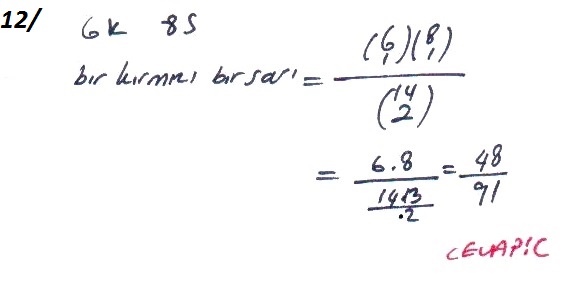 12/ 6K 8S
bir kırmızı bir sarı = (6 1)(8 1) / (14 2)
= 6.8 / (14.13 / .2) = 48 / 91
CEVAP:C